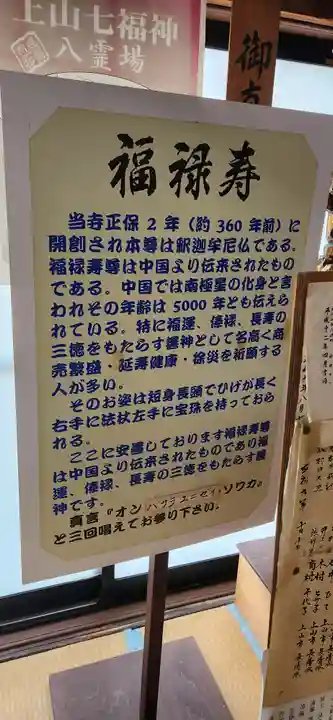 上山七福神
八霊場
福禄寿
当寺正保2年（約360年前）に
開創され本尊は釈迦牟尼仏である。
福禄寿尊は中国より伝来されたもの
である。中国では南極星の化身と言
われその年齢は5000年とも伝えら
れている。特に福運、俸禄、長寿の
三徳をもたらす護神として名高く商
売繁盛・延寿健康・除災を祈願する
人が多い。
そのお姿は短身長頭でひげが長く
右手に法杖左手に宝珠を持っておら
れる。
ここに安置しております福禄寿尊
は中国より伝来されたものであり福
運、俸禄、長寿の三徳をもたらす護
神です。
真言『オンハラライニセイ・ソワカ』
と三回唱えてお参り下さい。
御真